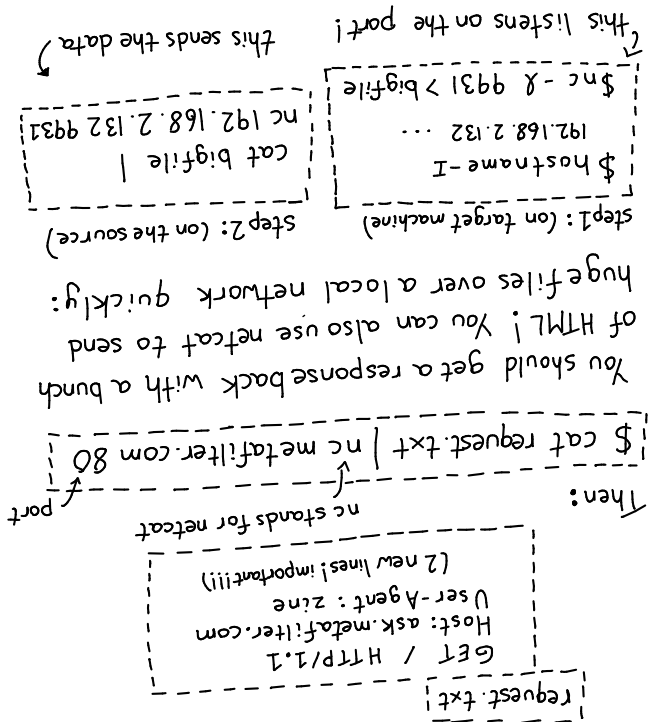 request.txt
GET / HTTP/1.1
Host: ask.metafilter.com
User-Agent: zine
(2 new lines! important!!!)
nc stands for netcat
Then:
port
$ cat request.txt | nc metafilter.com 80
You should get a response back with a bunch
of HTML! You can also use netcat to send
huge files over a local network quickly:
step1: (on target machine)
$ hostname -I
192.168.2.132 ...
$ nc -l 9931 > bigfile
this listens on the port!
step2: (on the source)
cat bigfile |
nc 192.168.2.132 9931
this sends the data